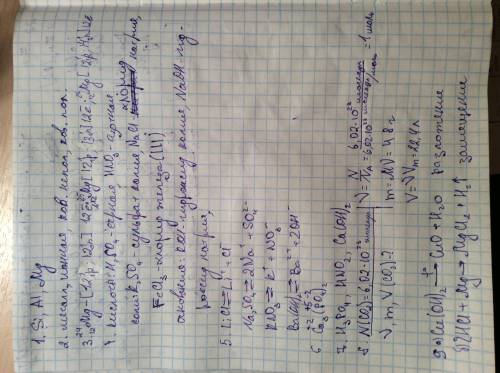 1. Si, Al, Mg
2. металл, ионная, ков. непол, ков. пол.
3. ²⁴₁₂Mg – [12p, 12n] 12ē; ²⁵₁₂Mg [12p, 13n] 12ē; ²⁶₁₂Mg [12p, 14n] 12ē
4 кислоты: H₂SO₄ - серная HNO₃ -
соли: K₂SO₄ - сульфат калия NaCl хлорид натрия,
FeCl₃ хлорид железа (III)
основания: KOH - гидроксид калия, NaOH - гид-
роксид натрия,
5. LiCl ⇄ Li⁺ + Cl⁻
Na₂SO₄ ⇄ 2Na⁺ + SO₄²⁻
KNO₃ ⇄ K⁺ + NO₃⁻
Ba(OH)₂ ⇄ Ba²⁺ + 2OH⁻
6 Ca₃(PO₄)₂
7. H₃PO₄, HNO₂, Ca(OH)₂
8. N(CO₂) = 6,02·10²³ молекул
V, m, V(CO₂)-?
ν = N/Nₐ = 6,02·10²³ молекул / 6,02·10²³ молекул/моль = 1 моль
m = Mν = 48 г
V = νVₘ = 22,4 л
9 а) Cu(OH)₂ t°→ CuO + H₂O разложение
б) 2HCl + Mg → MgCl₂ + H₂↑ замещение